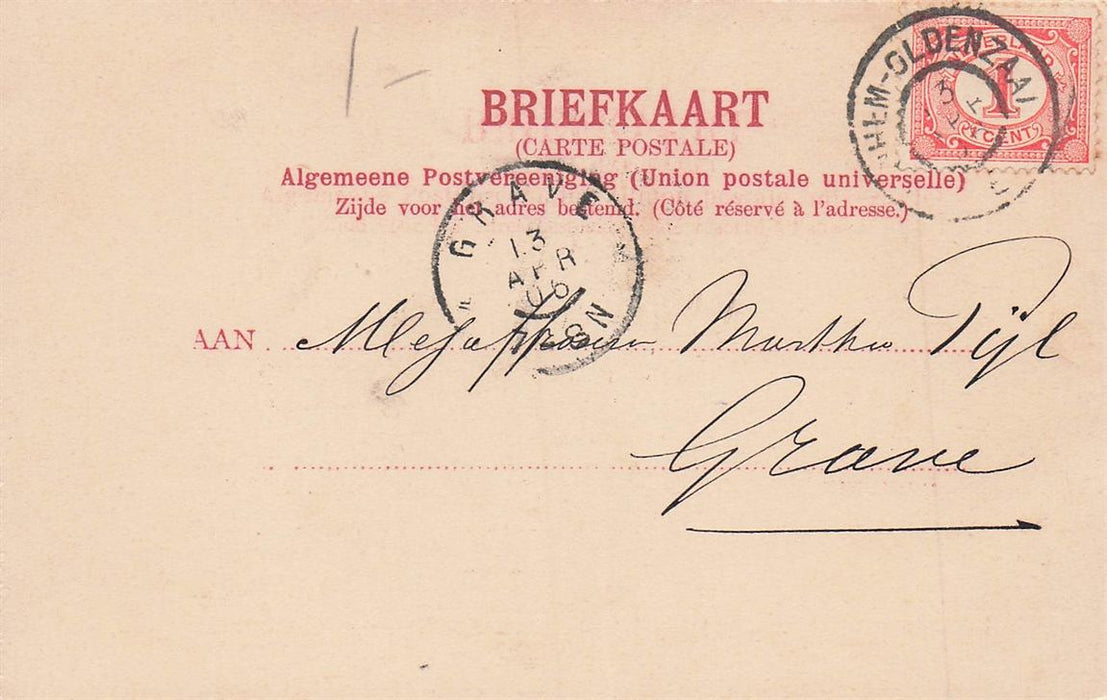 1-
NEDERLAND
1
1 CENT
NHEM-OLDENZAAL
BRIEFKAART
(CARTE POSTALE)
Algemeene Postvereeniging (Union postale universelle)
Zijde voor het adres bestemd. (Côté réservé à l'adresse.)
GRAVE
13
APR
06
8N
AAN Mejuffrouw Martha Tijl
Grave